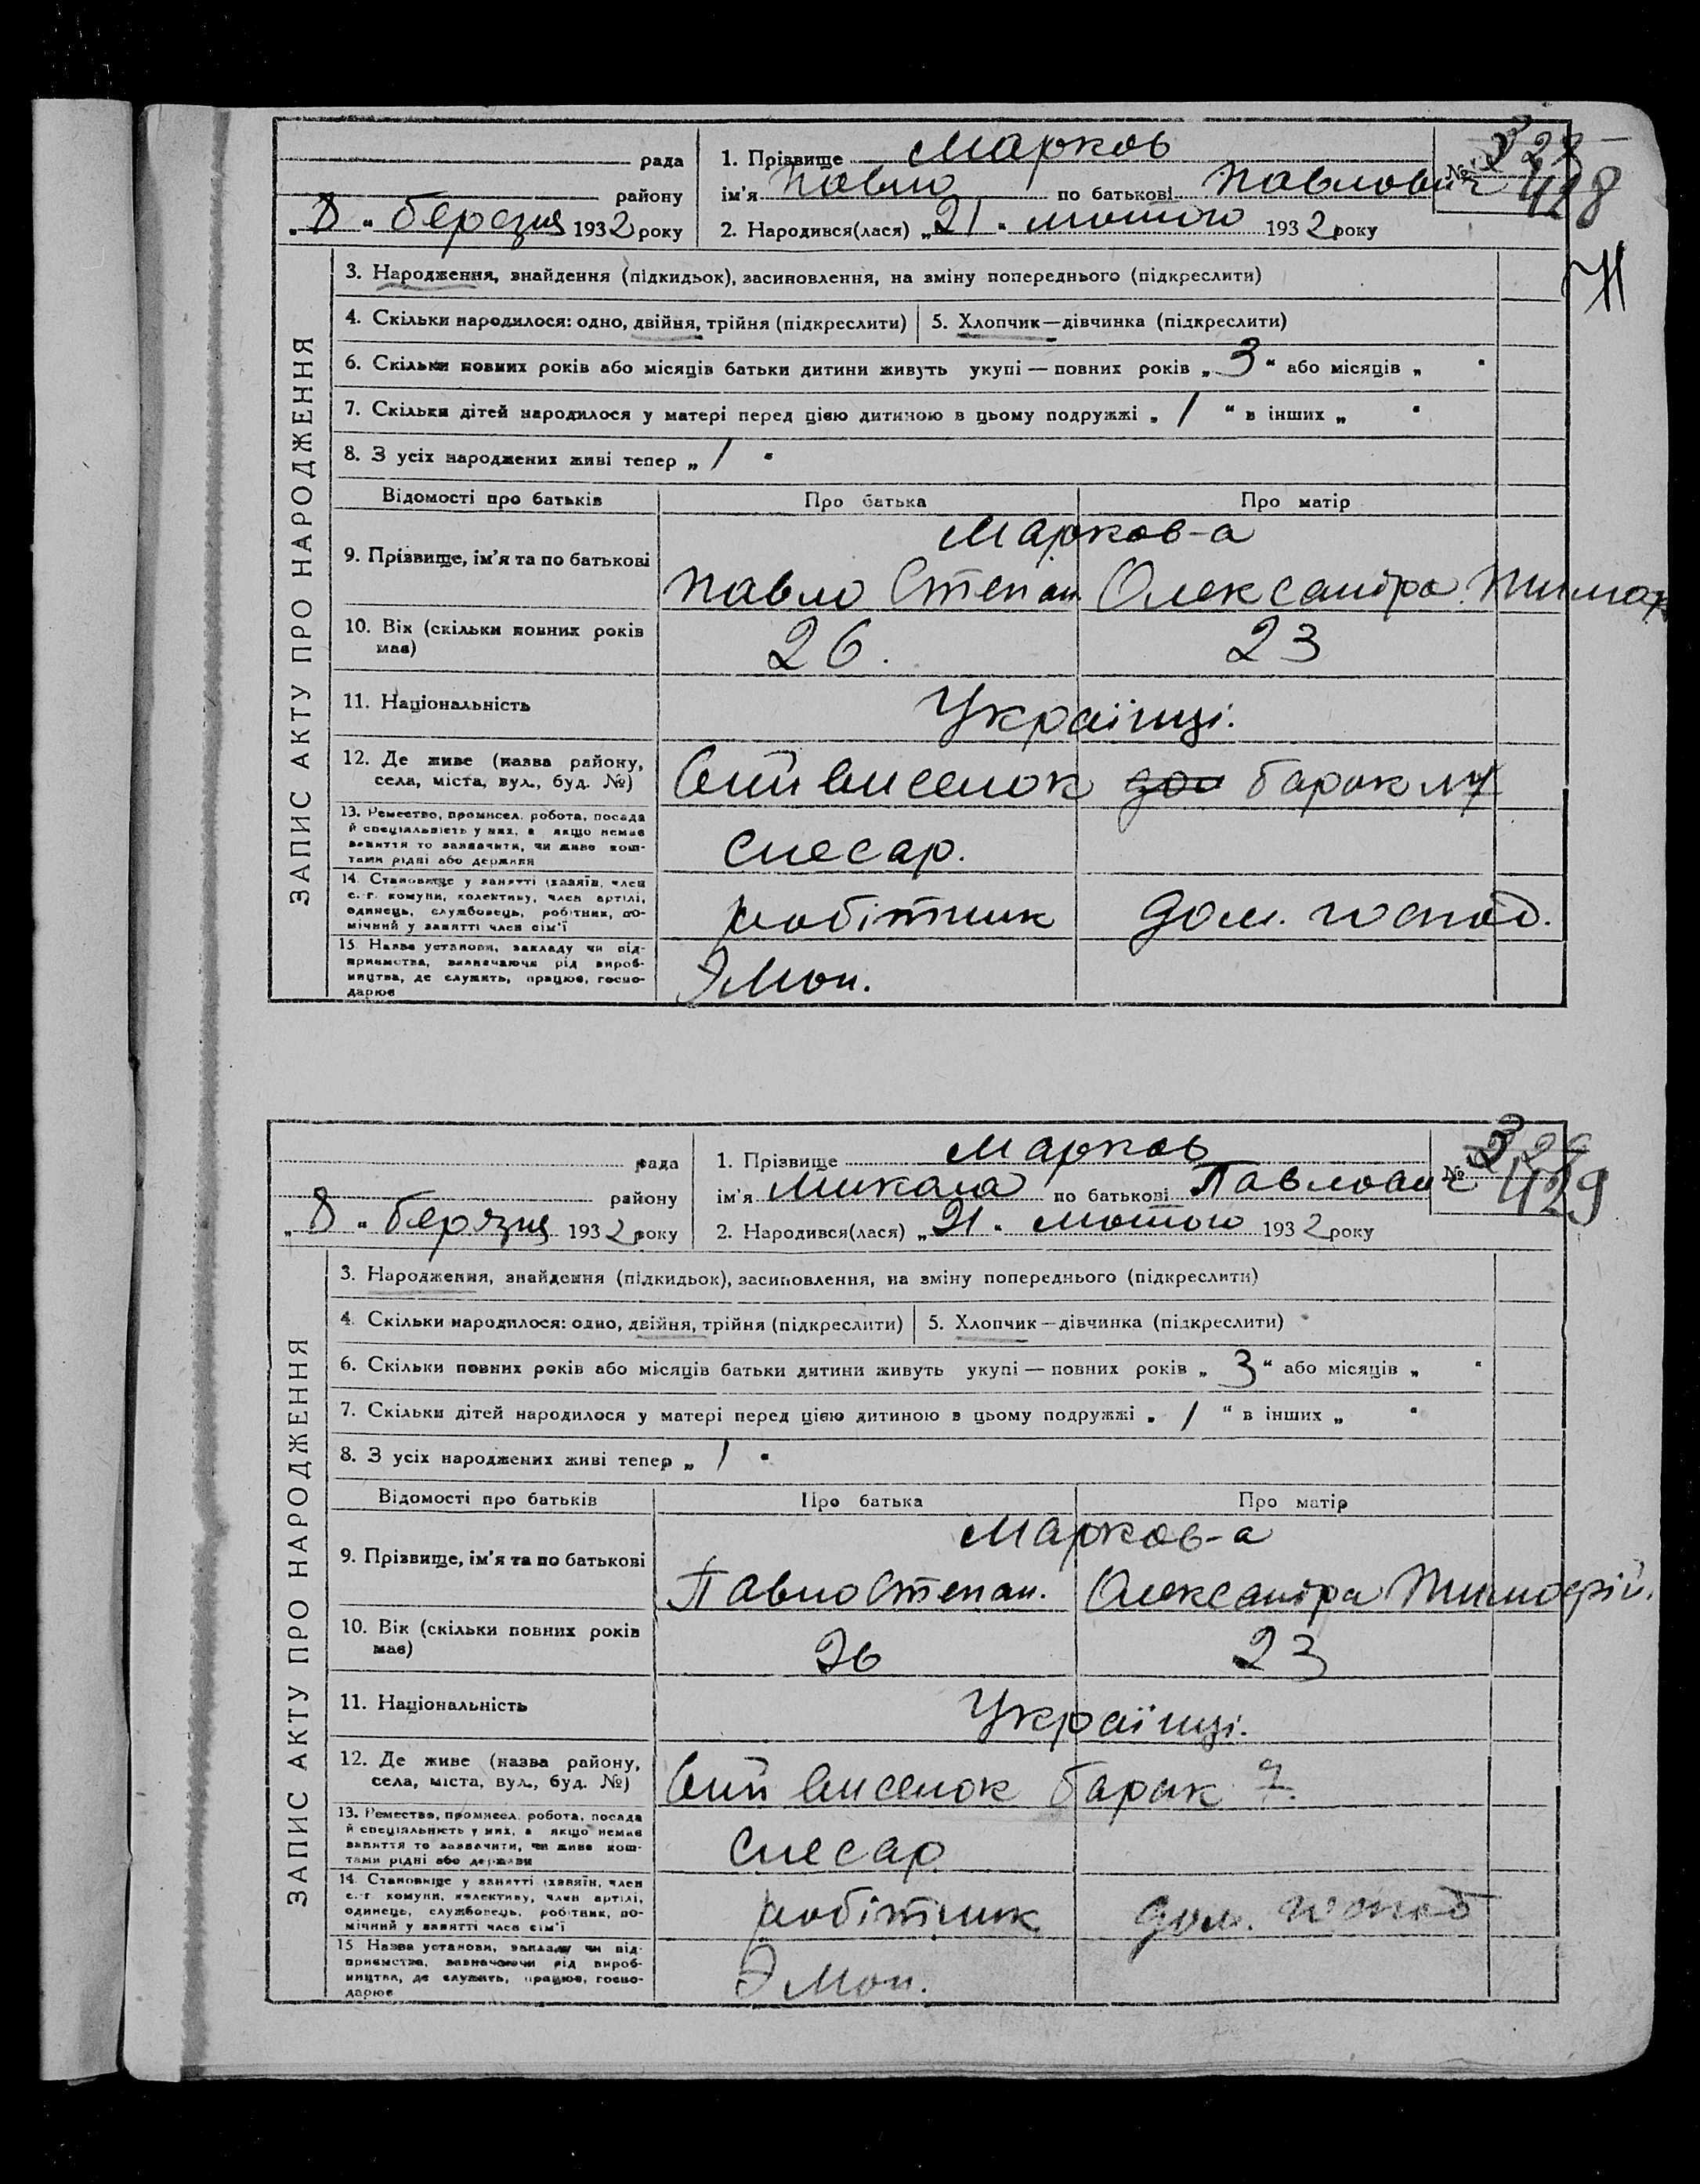 рада
району
„8“ березня 1932 року
1. Прізвище Марков
ім'я Павло по батькові Павлович
2. Народився(лася) „21“ лютого 1932 року
№ 328 428
ЗАПИС АКТУ ПРО НАРОДЖЕННЯ
3. Народження, знайдення (підкидьок), засиновлення, на зміну попереднього (підкреслити)
4. Скільки народилося: одно, двійня, трійня (підкреслити) 5. Хлопчик—дівчинка (підкреслити)
6. Скільки повних років або місяців батьки дитини живуть укупі — повних років „3“ або місяців „ “
7. Скільки дітей народилося у матері перед цією дитиною в цьому подружжі „1“ в інших „ “
8. З усіх народжених живі тепер „1“
Відомості про батьків Про батька Про матір
Марков-а
9. Прізвище, ім'я та по батькові Павло Степан. Олександра
10. Вік (скільки повних років має) 26. 23
11. Національність Українці.
12. Де живе (назва району, села, міста, вул., буд. №) виселок барак №7
13. Ремество, промисел, робота, посада
й спеціяльність у них, а якщо немає
заняття то зазначити, чи живе кош-
тами рідні або держави
Слесар.
14. Становище у занятті (хазяїн, член
с.-г. комуни, колективу, член артілі,
одинець, службовець, робітник, по-
мічний у занятті член сім'ї
робітник дом. господ.
15. Назва установи, закладу чи під-
приємства, визначаючи рід вироб-
ництва, де служить, працює, госпо-
дарює
рада
району
„8“ березня 1932 року
1. Прізвище Марков
ім'я Микола по батькові Павлович
2. Народився(лася) „21“ лютого 1932 року
№ 329 429
ЗАПИС АКТУ ПРО НАРОДЖЕННЯ
3. Народження, знайдення (підкидьок), засиновлення, на зміну попереднього (підкреслити)
4. Скільки народилося: одно, двійня, трійня (підкреслити) 5. Хлопчик—дівчинка (підкреслити)
6. Скільки повних років або місяців батьки дитини живуть укупі — повних років „3“ або місяців „ “
7. Скільки дітей народилося у матері перед цією дитиною в цьому подружжі „1“ в інших „ “
8. З усіх народжених живі тепер „1“
Відомості про батьків Про батька Про матір
Марков-а
9. Прізвище, ім'я та по батькові Павло Степан. Олександра Тимофій.
10. Вік (скільки повних років має) 26 23
11. Національність Українці.
12. Де живе (назва району, села, міста, вул., буд. №) виселок барак 7.
13. Ремество, промисел, робота, посада
й спеціяльність у них, а якщо немає
заняття то зазначити, чи живе кош-
тами рідні або держави
Слесар
14. Становище у занятті (хазяїн, член
с.-г. комуни, колективу, член артілі,
одинець, службовець, робітник, по-
мічний у занятті член сім'ї
робітник дом. господ
15. Назва установи, закладу чи під-
приємства, визначаючи рід вироб-
ництва, де служить, працює, госпо-
дарює